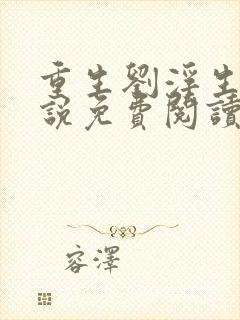 重生劉淫生
說免費閱讀
容澤